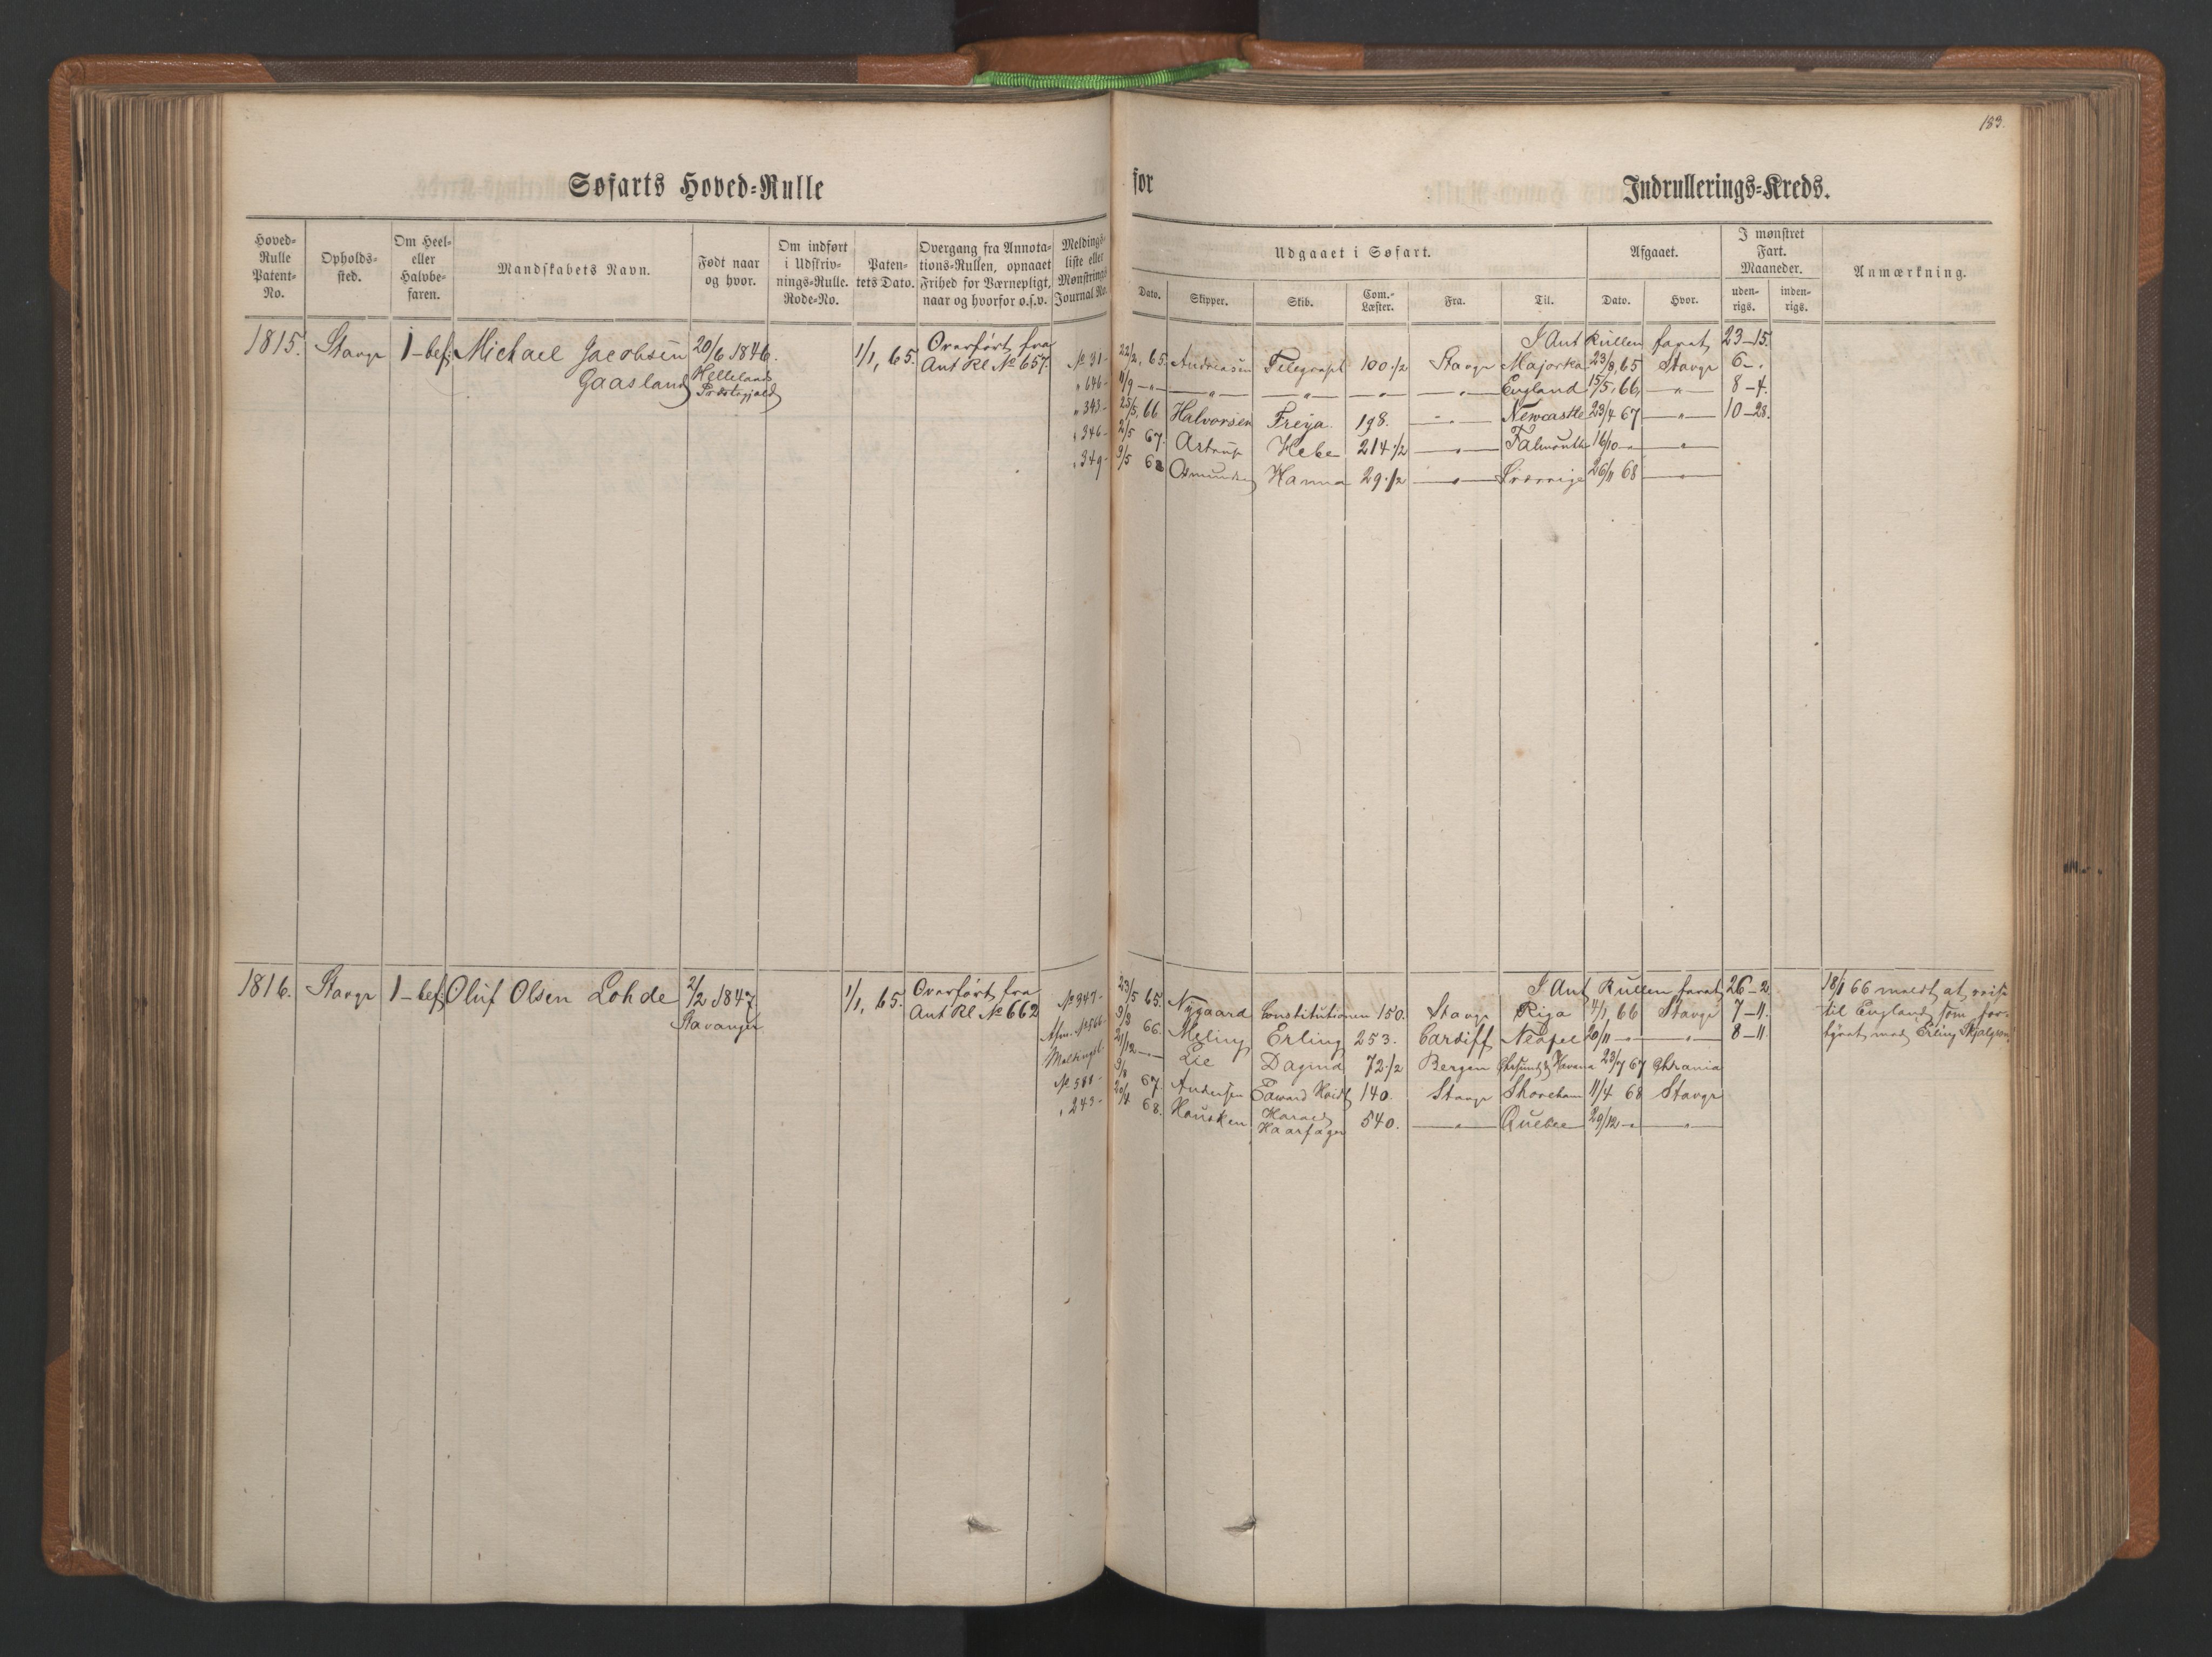 183.
Søfarts Hoved=Rulle for Indrullerings=Kreds.
Hoved=Rulle Patent=No. Opholds=sted. Om Heel= eller Halvbe=faren. Mandskabets Navn. Født naar og hvor. Om indført i Udskriv=nings=Rulle. Rode=No. Paten=tets Dato. Overgang fra Annota=tions=Rullen, opnaaet Frihed for Værnepligt, naar og hvorfor o.s.v. Meldings=liste eller Mønstrings Journal No.
Udgaaet i Søfart. Afgaaet. I mønstret Fart. Maaneder. Anmærkning.
Dato. Skipper. Skib. Com.=Læster. Fra. Til. Dato. Hvor. uden=rigs. inden=rigs.
1815. Stavgr 1-bef: Michael Jacobsen Gaasland 20/6 1846. Hellelands Præstegjæld 1/1, 65. Overført fra Ant Rl No 657.
I Ant Rullen faret 23-15.
No 31- 22/2, 65. Andreasen Telegraph 100 1/2 Stavgr Majorka 23/8, 65 Stavgr 6-.
" 646- 11/9 -"- -"- -"- -"- -"- England 15/5, 66, -"- 8-4.
" 343- 25/5, 66. Halvorsen Freya 198. -"- Newcastle 23/4 67 -"- 10-28.
" 346- 2/5 67. Astrup Hebe 214 1/2 -"- Falmouth 16/10 -"- -"-
" 349- 9/5 68 Osmundsen Hanna 29 1/2 -"- Sverrige 26/11 68 -"-
1816. Stavgr 1-bef: Oluf Olsen Lohde 2/2 1847. Stavanger 1/1, 65. Overført fra Ant Rl No 662
I Ant Rullen faret 26-2
No 347- 23/5 65. Nygaard Constitutionen 150. Stavgr Riga 4/1, 66 Stavgr 7-11.
Afm. No 566- 9/8 66. Meling Erling 253. Cardiff Neapel 20/11 -"- -"- 8-11.
Meldingsl. 21/12 -"- Lie Dagmar 72 1/2 Bergen Havana 23/7 67 Chrania
No 580- 9/8 67. Andersen Edward 140. Stavgr Shoreham 11/4 68 Stavgr
" 243- 20/4 68. Hausken Harald Haarfager 540. -"- Quebec 29/12 -"- -"-
18/1 66 meldt at reise
til England som for-
hyret med Erling Skjalgson